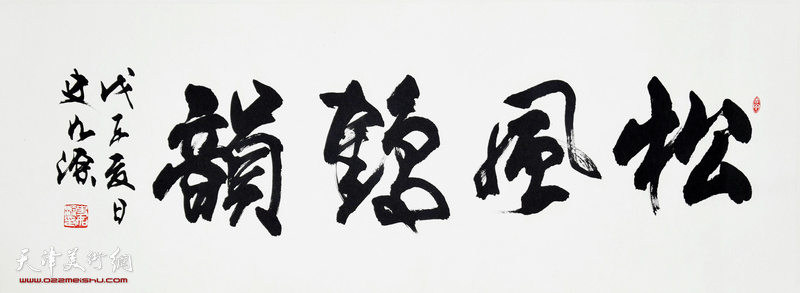 松風鶴韻
戊子夏日
史如源
天津美術網
www.022meishu.com